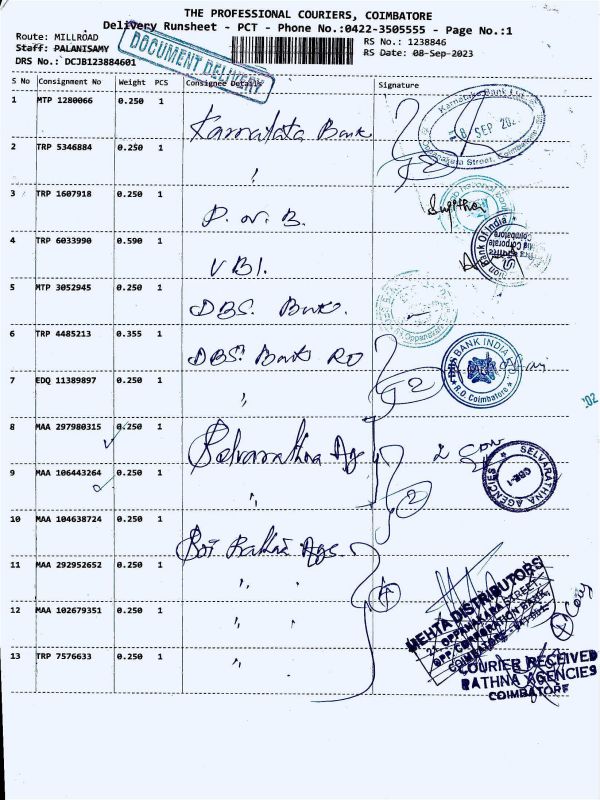 THE PROFESSIONAL COURIERS, COIMBATORE
Delivery Runsheet - PCT - Phone No.:0422-3505555 - Page No.:1
Route: MILLROAD
RS No.: 1238846
Staff: PALANISAMY
RS Date: 08-Sep-2023
DRS No.: DCJB123884601
DOCUMENT DELIVERY
S No Consignment No Weight PCS Consignee Details Signature
1 MTP 1280066 0.250 1 Karnataka Bank
Karnataka Bank
SEP 202
Oppanakara Street, Coimbatore
2 TRP 5346884 0.250 1 "
2
3 TRP 1607918 0.250 1 P. N. B.
4 TRP 6033990 0.590 1 UBI.
Bank Of India
5 MTP 3052945 0.250 1 DBS. Bank.
6 TRP 4485213 0.355 1 DBS. Bank RO
DBS BANK INDIA
R.O. Coimbatore
7 EDQ 11389897 0.250 1 "
2
8 MAA 297980315 0.250 1 Selvarathna Ags
SELVARATHNA AGENCIES
CBE-1
9 MAA 106443264 0.250 1 "
2
10 MAA 104638724 0.250 1 Rathna Ags
11 MAA 292952652 0.250 1 " "
4
MEHTA DISTRIBUTORS
OPPANAKARA STREET,
OPP. CORPORATION BANK,
COIMBATORE
12 MAA 102679351 0.250 1 " "
13 TRP 7576633 0.250 1 "
COURIER RECEIVED
RATHNA AGENCIES
COIMBATORE